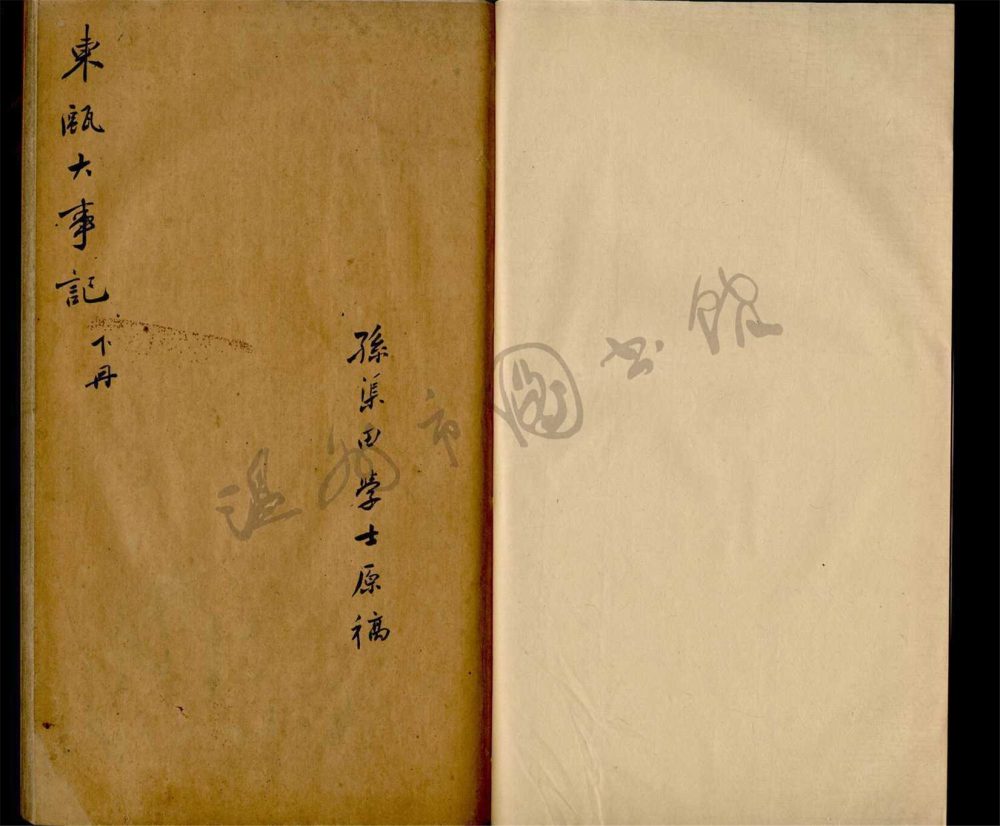 東甌大事記 下冊
孫渠田學士原稿
温州市图书馆